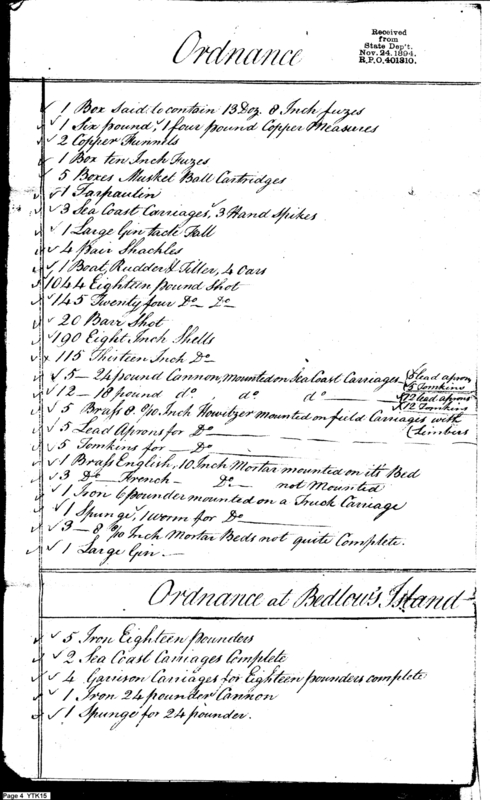 Ordnance
Received
from
State Dep't.
Nov. 24. 1894.
R.P.O. 401310.
1 Box Said to contain 13 Doz. 8 Inch fuzes
1 Six pound, 1 four pound Copper Measures
2 Copper Funnels
1 Box ten Inch Fuzes
5 Boxes Musket Ball Cartridges
1 Tarpaulin
3 Sea Coast Carriages, 3 Hand Spikes
1 Large Gin tack Fall
4 pair Shackles
1 Boat, Rudder & Tiller, 4 Oars
1044 Eighteen pound Shot
145 Twenty four Do Do
20 Barr Shot
190 Eight Inch Shells
115 Thirteen Inch Do
5 — 24 pound Cannon, mounted on Sea Coast Carriages { 5 lead aprons
5 Tomkins
12 - 18 pound do , do do 12 lead aprons
12 Tomkins
5 Brass 8 Inch Howitzer mounted on field Carriages with
Limbers
5 Lead Aprons for Do
5 Tomkins for Do
1 Brass English, 10 Inch Mortar mounted on its Bed
3 Do French - Do not Mounted
1 Iron 6 pounder mounted on a Truck Carriage
1 Spunge, 1 worm for Do
3 — 8 Inch Mortar Beds not quite Complete.
1 Large Gin. —
Ordnance at Bedlow's Island
5 Iron Eighteen pounders
2 Sea Coast Carriages Complete
4 Garrison Carriages for Eighteen pounders complete
1 Iron 24 pounder Cannon
1 Spunge for 24 pounder.
Page 4 YTK15